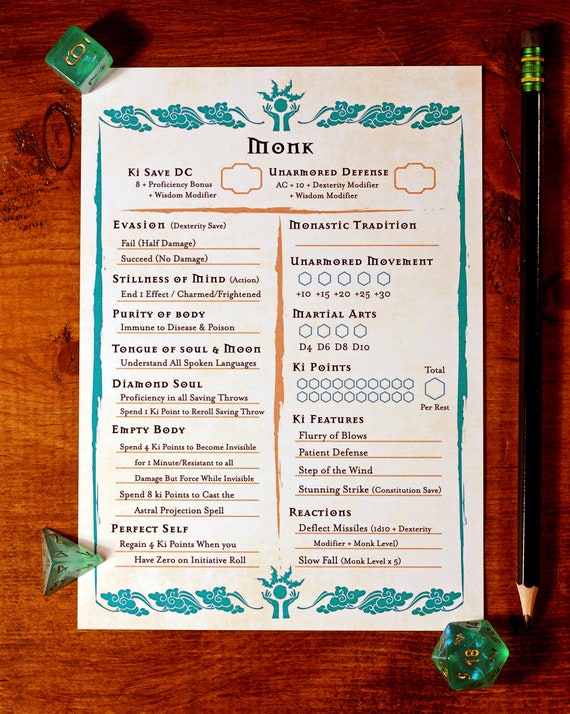 Monk
Ki Save DC
8 + Proficiency Bonus
+ Wisdom Modifier
Unarmored Defense
AC = 10 + Dexterity Modifier
+ Wisdom Modifier
Evasion (Dexterity Save)
Fail (Half Damage)
Succeed (No Damage)
Stillness of Mind (Action)
End 1 Effect / Charmed/Frightened
Purity of body
Immune to Disease & Poison
Tongue of soul & Moon
Understand All Spoken Languages
Diamond Soul
Proficiency in all Saving Throws
Spend 1 Ki Point to Reroll Saving Throw
Empty Body
Spend 4 Ki Points to Become Invisible
for 1 Minute/Resistant to all
Damage But Force While Invisible
Spend 8 ki Points to Cast the
Astral Projection Spell
Perfect Self
Regain 4 Ki Points When you
Have Zero on Initiative Roll
Monastic Tradition
Unarmored Movement
+10 +15 +20 +25 +30
Martial Arts
D4 D6 D8 D10
Ki Points
Total
Per Rest
Ki Features
Flurry of Blows
Patient Defense
Step of the Wind
Stunning Strike (Constitution Save)
Reactions
Deflect Missiles (1d10 + Dexterity
Modifier + Monk Level)
Slow Fall (Monk Level x 5)
18